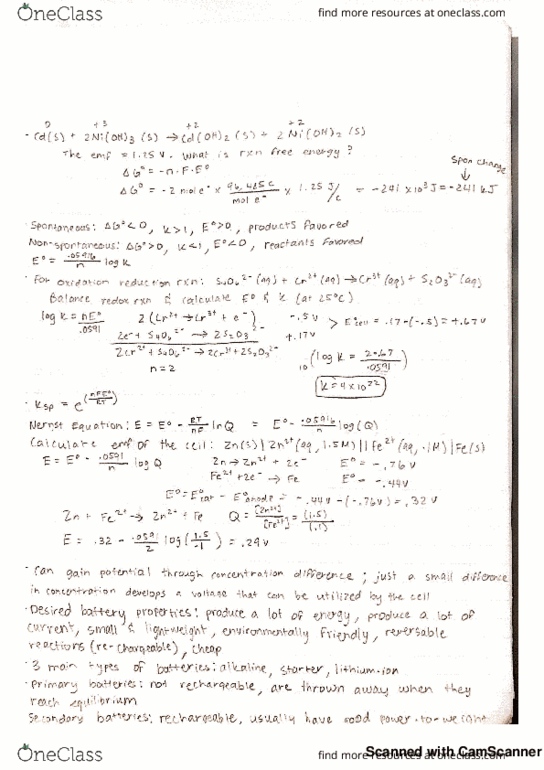 OneClass
find more resources at oneclass.com
0 +3 +2 +2
· Cd(s) + 2Ni(OH)3 (s) → Cd(OH)2 (s) + 2 Ni(OH)2 (s)
The emf = 1.25 V. What is rxn free energy?
ΔG° = -n·F·E°
ΔG° = -2 mol e⁻ × 96,485 C / mol e⁻ × 1.25 J/C = -241 × 10³ J = -241 kJ
Spon change
· Spontaneous: ΔG°<0, K>1, E°>0, products favored
Non-spontaneous: ΔG°>0, K<1, E°<0, reactants favored
E° = .05916/n log K
· For oxidation reduction rxn: S4O6²⁻ (aq) + Cr²⁺ (aq) → Cr³⁺ (aq) + S2O3²⁻ (aq)
Balance redox rxn & calculate E° & K (at 25°C)
log K = nE°/.0591 2(Cr²⁺ → Cr³⁺ + e⁻) -.5 V > E°cell = .17-(-.5) = +.67 V
2e⁻ + S4O6²⁻ → 2S2O3²⁻ +.17V
2Cr²⁺ + S4O6²⁻ → 2Cr³⁺ + 2S2O3²⁻
n=2
10 (log K = 2·.67/.0591)
K = 4 × 10²²
· Ksp = e^(nFE°/RT)
Nernst Equation: E = E° - RT/nF ln Q = E° - .05916/n log(Q)
Calculate emf of the cell: Zn(s) | Zn²⁺(aq, 1.5M) || Fe²⁺(aq, .1M) | Fe(s)
E = E° - .0591/n log Q Zn → Zn²⁺ + 2e⁻ E° = -.76 V
Fe²⁺ + 2e⁻ → Fe E° = -.44V
E° = E°cat - E°anode = -.44V - (-.76V) = .32 V
Zn + Fe²⁺ → Zn²⁺ + Fe Q = [Zn²⁺]/[Fe²⁺] = (1.5)/(.1)
E = .32 - .0591/2 log(1.5/.1) = .29 V
· Can gain potential through concentration difference; just a small difference
in concentration develops a voltage that can be utilized by the cell
· Desired battery properties: produce a lot of energy, produce a lot of
current, small & lightweight, environmentally friendly, reversable
reactions (re-chargeable), cheap
· 3 main types of batteries: alkaline, starter, lithium-ion
· primary batteries: not rechargeable, are thrown away when they
reach equilibrium
Secondary batteries: rechargeable, usually have good power-to-weight
OneClass
find more resources at oneclass.com
Scanned with CamScanner